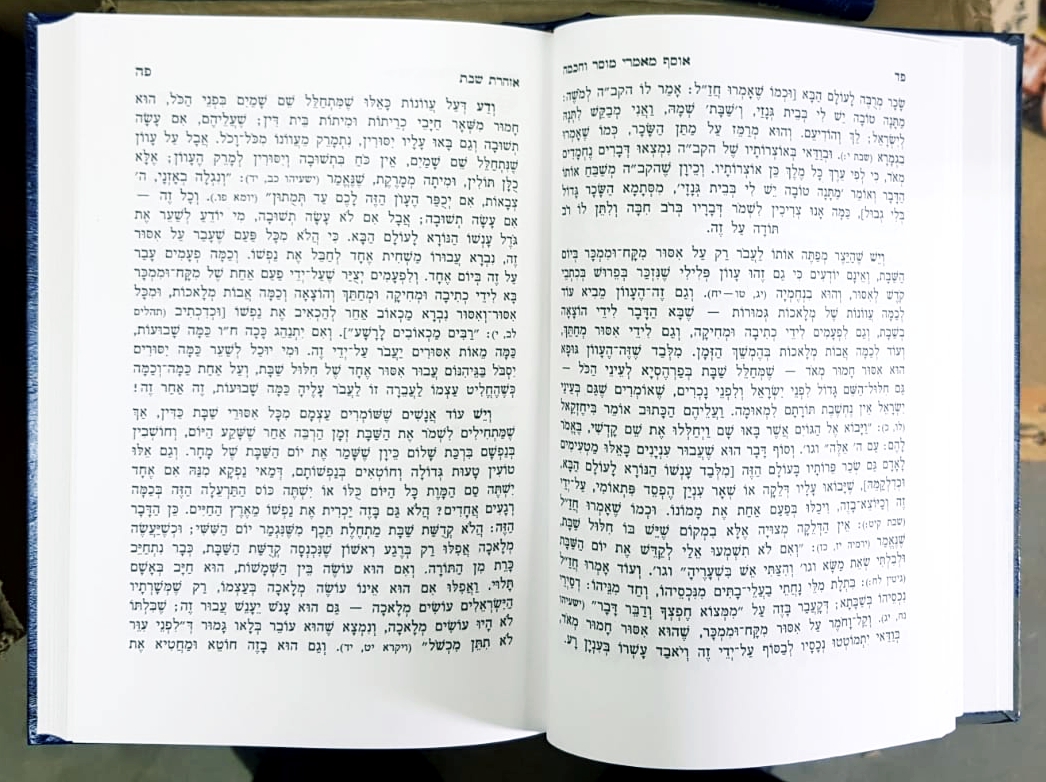 פד
אוסף מאמרי מוסר וחכמה
שָׂכָר מְרֻבֶּה לָעוֹלָם הַבָּא [וּכְמוֹ שֶׁאָמְרוּ חֲזַ״ל: אָמַר לוֹ הקב״ה לְמֹשֶׁה:
מַתָּנָה טוֹבָה יֵשׁ לִי בְּבֵית גְּנָזַי, וְ׳שַׁבָּת׳ שְׁמָהּ, וַאֲנִי מְבַקֵּשׁ לִתְּנָהּ
לְיִשְׂרָאֵל; לֵךְ וְהוֹדִיעֵם. וְהוּא מְרַמֵּז עַל מַתַּן הַשָּׂכָר, כְּמוֹ שֶׁאָמְרוּ
בַּגְּמָרָא (שבת י:). וּבְוַדַּאי בְּאוֹצְרוֹתָיו שֶׁל הקב״ה נִמְצְאוּ דְּבָרִים נֶחְמָדִים
מְאֹד, כִּי לְפִי עֵרֶךְ כָּל מֶלֶךְ כֵּן אוֹצְרוֹתָיו. וְכֵיוָן שֶׁהקב״ה מְשַׁבֵּחַ אוֹתוֹ
הַדָּבָר וְאוֹמֵר ׳מַתָּנָה טוֹבָה יֵשׁ לִי בְּבֵית גְּנָזַי׳, מִסְּתָמָא הַשָּׂכָר גָּדוֹל
בְּלִי גְבוּל], כַּמָּה אָנוּ צְרִיכִין לִשְׁמֹר דְּבָרָיו בְּרֹב חִבָּה וְלִתֵּן לוֹ רֹב
תּוֹדָה עַל זֶה.
וְיֵשׁ שֶׁהַיֵּצֶר מְפַתֶּה אוֹתוֹ לַעֲבֹר רַק עַל אִסּוּר מִקָּח־וּמִמְכָּר בְּיוֹם
הַשַּׁבָּת, וְאֵינָם יוֹדְעִים כִּי גַם זֶהוּ עָווֹן פְּלִילִי שֶׁנִּזְכַּר בְּפֵרוּשׁ בְּכִתְבֵי
קֹדֶשׁ לְאִסּוּר, וְהוּא בִּנְחֶמְיָה (יג, טו—יח). וְגַם זֶה־הֶעָווֹן מֵבִיא עוֹד
לְכַמָּה עֲווֹנוֹת שֶׁל מְלָאכוֹת גְּמוּרוֹת — שֶׁבָּא הַדָּבָר לִידֵי הוֹצָאָה
בְּשַׁבָּת, וְגַם לִפְעָמִים לִידֵי כְּתִיבָה וּמְחִיקָה, וְגַם לִידֵי אִסּוּר מְחַתֵּךְ,
וְעוֹד לְכַמָּה אֲבוֹת מְלָאכוֹת בְּהֶמְשֵׁךְ הַזְּמַן. מִלְּבַד שֶׁזֶּה־הֶעָווֹן גּוּפָא
הוּא אִסּוּר חָמוּר מְאֹד — שֶׁמְּחַלֵּל שַׁבָּת בְּפַרְהֶסְיָא לְעֵינֵי הַכֹּל —
גַּם חִלּוּל־הַשֵּׁם גָּדוֹל לִפְנֵי יִשְׂרָאֵל וְלִפְנֵי נָכְרִים, שֶׁאוֹמְרִים שֶׁגַּם בְּעֵינֵי
יִשְׂרָאֵל אֵין נֶחְשֶׁבֶת תּוֹרָתָם לִמְאוּמָה. וַעֲלֵיהֶם הַכָּתוּב אוֹמֵר בִּיחֶזְקֵאל
(לו, כ): ״וַיָּבוֹא אֶל הַגּוֹיִם אֲשֶׁר בָּאוּ שָׁם וַיְחַלְּלוּ אֶת שֵׁם קָדְשִׁי, בֶּאֱמֹר
לָהֶם: עַם ה׳ אֵלֶּה״ וגו׳. וְסוֹף דָּבָר הוּא שֶׁעֲבוּר עִנְיָנִים כָּאֵלּוּ מַטְעִימִים
לָאָדָם גַּם שְׂכַר פֵּרוֹתָיו בָּעוֹלָם הַזֶּה [מִלְּבַד עָנְשׁוֹ הַנּוֹרָא לָעוֹלָם הַבָּא,
וּכְדִלְקַמֵּה], שֶׁיָּבוֹאוּ עָלָיו דְּלֵקָה אוֹ שְׁאָר עִנְיַן הֶפְסֵד פִּתְאוֹמִי, עַל־יְדֵי
זֶה וְכַיּוֹצֵא־בָזֶה, וִיכַלּוּ בְּפַעַם אַחַת אֶת מָמוֹנוֹ. וּכְמוֹ שֶׁאָמְרוּ חֲזַ״ל
(שבת קיט:): אֵין הַדְּלֵקָה מְצוּיָה אֶלָּא בְּמָקוֹם שֶׁיֵּשׁ בּוֹ חִלּוּל שַׁבָּת,
שֶׁנֶּאֱמַר (ירמיה יז, כז): ״וְאִם לֹא תִשְׁמְעוּ אֵלַי לְקַדֵּשׁ אֶת יוֹם הַשַּׁבָּת
וּלְבִלְתִּי שְׂאֵת מַשָּׂא וגו׳ וְהִצַּתִּי אֵשׁ בִּשְׁעָרֶיהָ״ וגו׳. וְעוֹד אָמְרוּ חֲזַ״ל
(גיטין לח:): בִּתְלָת מִלֵּי נָחֲתֵי בַעֲלֵי־בָתִּים מִנִּכְסֵיהוֹ, וְחַד מִנַּיְהוּ: דְּסָיְרֵי
נִכְסֵיהוֹ בְּשַׁבְּתָא; דְּקָעָבַר בָּזֶה עַל ״מִמְּצוֹא חֶפְצְךָ וְדַבֵּר דָּבָר״ (ישעיהו
נח, יג). וְקַל־וָחֹמֶר עַל אִסּוּר מִקָּח־וּמִמְכָּר, שֶׁהוּא אִסּוּר חָמוּר מְאֹד,
בְּוַדַּאי יִתְמוֹטְטוּ נְכָסָיו לְבַסּוֹף עַל־יְדֵי זֶה וְיֹאבַד עָשְׁרוֹ בְּעִנְיָן רָע.
אזהרת שבת
פה
וְדַע דְּעַל עֲווֹנוֹת כָּאֵלּוּ שֶׁמִּתְחַלֵּל שֵׁם שָׁמַיִם בִּפְנֵי הַכֹּל, הוּא
חָמוּר מִשְּׁאָר חַיָּבֵי כְרֵיתוֹת וּמִיתוֹת בֵּית דִּין; שֶׁעֲלֵיהֶם, אִם עָשָׂה
תְּשׁוּבָה וְגַם בָּאוּ עָלָיו יִסּוּרִין, נִתְמָרֵק מֵעֲווֹנוֹ מִכֹּל־וָכֹל. אֲבָל עַל עָווֹן
שֶׁנִּתְחַלֵּל שֵׁם שָׁמַיִם, אֵין כֹּחַ בִּתְשׁוּבָה וְיִסּוּרִין לְמָרֵק הֶעָווֹן; אֶלָּא
כֻּלָּן תּוֹלִין, וּמִיתָה מְמָרֶקֶת, שֶׁנֶּאֱמַר (ישעיהו כב, יד): ״וְנִגְלָה בְאָזְנָי, ה׳
צְבָאוֹת, אִם יְכֻפַּר הֶעָווֹן הַזֶּה לָכֶם עַד תְּמֻתוּן״ (יומא פו.). וְכָל זֶה —
אִם עָשָׂה תְּשׁוּבָה; אֲבָל אִם לֹא עָשָׂה תְּשׁוּבָה, מִי יוֹדֵעַ לְשַׁעֵר אֶת
גֹּדֶל עָנְשׁוֹ הַנּוֹרָא לָעוֹלָם הַבָּא. כִּי הֲלֹא מִכָּל פַּעַם שֶׁעָבַר עַל אִסּוּר
זֶה, נִבְרָא עֲבוּרוֹ מַשְׁחִית אֶחָד לְחַבֵּל אֶת נַפְשׁוֹ. וְכַמָּה פְעָמִים עָבַר
עַל זֶה בְּיוֹם אֶחָד. וְלִפְעָמִים יְצֻיַּר שֶׁעַל־יְדֵי פַּעַם אַחַת שֶׁל מִקָּח־וּמִמְכָּר
בָּא לִידֵי כְּתִיבָה וּמְחִיקָה וּמְחַתֵּךְ וְהוֹצָאָה וְכַמָּה אֲבוֹת מְלָאכוֹת, וּמִכָּל
אִסּוּר־וְאִסּוּר נִבְרָא מַכְאוֹב אַחֵר לְהַכְאִיב אֶת נַפְשׁוֹ [וּכְדִכְתִיב (תהלים
לב, י): ״רַבִּים מַכְאוֹבִים לָרָשָׁע״]. וְאִם יִתְנַהֵג כָּכָה ח״ו כַּמָּה שָׁבוּעוֹת,
כַּמָּה מֵאוֹת אִסּוּרִים יַעֲבֹר עַל־יְדֵי זֶה. וּמִי יוּכַל לְשַׁעֵר כַּמָּה יִסּוּרִים
יִסְבֹּל בַּגֵּיהִנּוֹם עֲבוּר אִסּוּר אֶחָד שֶׁל חִלּוּל שַׁבָּת, וְעַל אַחַת כַּמָּה־וְכַמָּה
כְּשֶׁהֶחְלִיט עַצְמוֹ לַעֲבֵרָה זוֹ לַעֲבֹר עָלֶיהָ כַּמָּה שָׁבוּעוֹת, זֶה אַחַר זֶה!
וְיֵשׁ עוֹד אֲנָשִׁים שֶׁשּׁוֹמְרִים עַצְמָם מִכָּל אִסּוּרֵי שַׁבָּת כַּדִּין, אַךְ
שֶׁמַּתְחִילִים לִשְׁמֹר אֶת הַשַּׁבָּת זְמַן הַרְבֵּה אַחַר שֶׁשָּׁקַע הַיּוֹם, וְחוֹשְׁבִין
בְּנַפְשָׁם בִּרְכַּת שָׁלוֹם כֵּיוָן שֶׁשָּׁמַר אֶת יוֹם הַשַּׁבָּת שֶׁל מָחָר. וְגַם אֵלּוּ
טוֹעִין טָעוּת גְּדוֹלָה וְחוֹטְאִים בְּנַפְשׁוֹתָם, דְּמַאי נָפְקָא מִנַּהּ אִם אֶחָד
יִשְׁתֶּה סַם הַמָּוֶת כָּל הַיּוֹם כֻּלּוֹ אוֹ יִשְׁתֶּה כּוֹס הַתַּרְעֵלָה הַזֶּה בְּכַמָּה
רְגָעִים אֲחָדִים? הֲלֹא גַם בָּזֶה יַכְרִית אֶת נַפְשׁוֹ מֵאֶרֶץ הַחַיִּים. כֵּן הַדָּבָר
הַזֶּה: הֲלֹא קְדֻשַּׁת שַׁבָּת מַתְחֶלֶת תֵּכֶף מִשֶּׁנִּגְמַר יוֹם הַשִּׁשִּׁי; וּכְשֶׁיַּעֲשֶׂה
מְלָאכָה אֲפִלּוּ רַק בְּרֶגַע רִאשׁוֹן שֶׁנִּכְנְסָה קְדֻשַּׁת הַשַּׁבָּת, כְּבָר נִתְחַיֵּב
כָּרֵת מִן הַתּוֹרָה. וְאִם הוּא עוֹשֶׂה בֵּין הַשְּׁמָשׁוֹת, הוּא חַיָּב בְּאָשָׁם
תָּלוּי. וַאֲפִלּוּ אִם הוּא אֵינוֹ עוֹשֶׂה מְלָאכָה בְּעַצְמוֹ, רַק שֶׁמְּשָׁרְתָיו
הַיִּשְׂרְאֵלִים עוֹשִׂים מְלָאכָה — גַּם הוּא עָנֹשׁ יֵעָנֵשׁ עֲבוּר זֶה; שֶׁבִּלְתּוֹ
לֹא הָיוּ עוֹשִׂים מְלָאכָה, וְנִמְצָא שֶׁהוּא עוֹבֵר בְּלָאו גָּמוּר דְּ״לִפְנֵי עִוֵּר
לֹא תִתֵּן מִכְשֹׁל״ (ויקרא יט, יד). וְגַם הוּא בָזֶה חוֹטֵא וּמַחֲטִיא אֶת